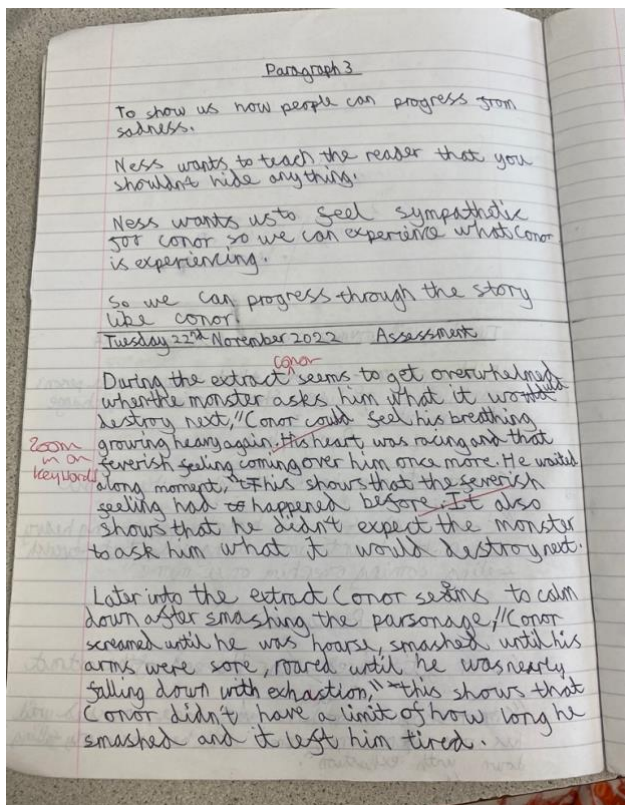 Paragraph 3
To show us how people can progress from
sadness.
Ness wants to teach the reader that you
shouldnt hide anything.
Ness wants us to feel sympathetic
for conor so we can experience what conor
is experiencing.
So we can progress through the story
like conor.
Tuesday 22nd November 2022 Assessment
conor
During the extract seems to get overwhelmed
when the monster asks him what it would
destroy next, "Conor could feel his breathing
growing heavy again. His heart was racing and that
Zoom
in on
keywords
feverish feeling coming over him once more. He waited
a long moment," This shows that the feverish
feeling had happened before. It also
shows that he didn't expect the monster
to ask him what it would destroy next.
Later into the extract Conor seems to calm
down after smashing the parsonage, "Conor
screamed until he was hoarse, smashed until his
arms were sore, roared until he was nearly
falling down with exhastion," this shows that
Conor didn't have a limit of how long he
smashed and it left him tired.